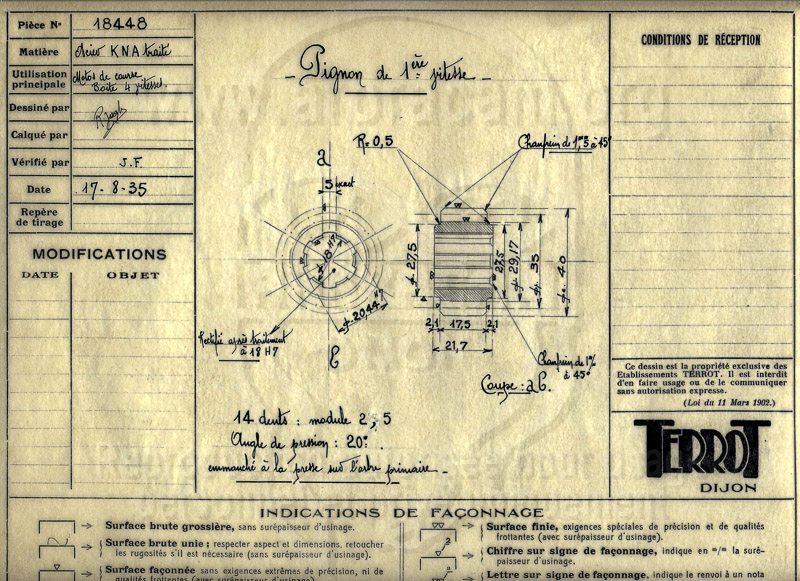 Pièce No 18448
Matière Acier KNA traité
Utilisation principale Motos de course Boîte 4 vitesses.
Dessiné par
Calqué par
Vérifié par J.F.
Date 17-8-35
Repère de tirage
MODIFICATIONS
DATE OBJET
Pignon de 1ère vitesse
CONDITIONS DE RÉCEPTION
R=0,5
Chanfrein de 1,5 à 45°
a
5 exact
ø 18 H7
ø. 20,44
Rectifié après traitement
à 18 H7
ø 27,5
27,5
ø 29,17
ø. 35
ø. 40
2,1 17,5 2,1
21,7
Chanfrein de 1%
à 45°
Coupe: a b.
14 dents : module 2,5
Angle de pression : 20°
emmanché à la presse sur l'arbre primaire
Ce dessin est la propriété exclusive des
Etablissements TERROT. Il est interdit
d'en faire usage ou de le communiquer
sans autorisation expresse.
(Loi du 11 Mars 1902.)
TERROT
DIJON
INDICATIONS DE FAÇONNAGE
Surface brute grossière, sans surépaisseur d'usinage.
Surface brute unie; respecter aspect et dimensions, retoucher
les rugosités s'il est nécessaire (sans surépaisseur d'usinage).
Surface façonnée sans exigences extrêmes de précision, ni de
qualités frottantes (avec surépaisseur d'usinage).
Surface finie, exigences spéciales de précision et de qualités
frottantes (avec surépaisseur d'usinage).
Chiffre sur signe de façonnage, indique en m/m la suré-
paisseur d'usinage.
Lettre sur signe de façonnage, indique le renvoi à un nota